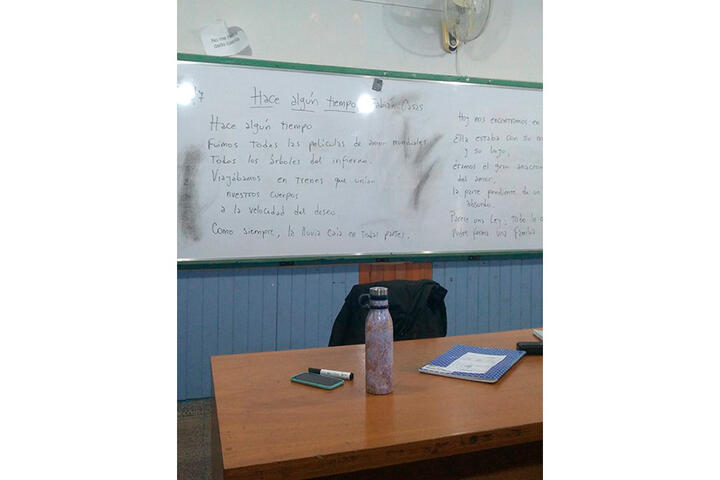 No me había dado cuenta
7
Hace algún tiempo, Fabián Casas
Hace algún tiempo
Fuimos todas las películas de amor mundiales
Todos los árboles del infierno.
Viajábamos en trenes que unían
nuestros cuerpos
a la velocidad del deseo.
Como siempre, la lluvia caía en todas partes.
Hoy nos encontramos en
Ella estaba con su
y su hijo,
éramos el gran anacronismo
del amor,
la parte pendiente de un
absurdo.
Parece una ley: todo lo
puede forma una familia